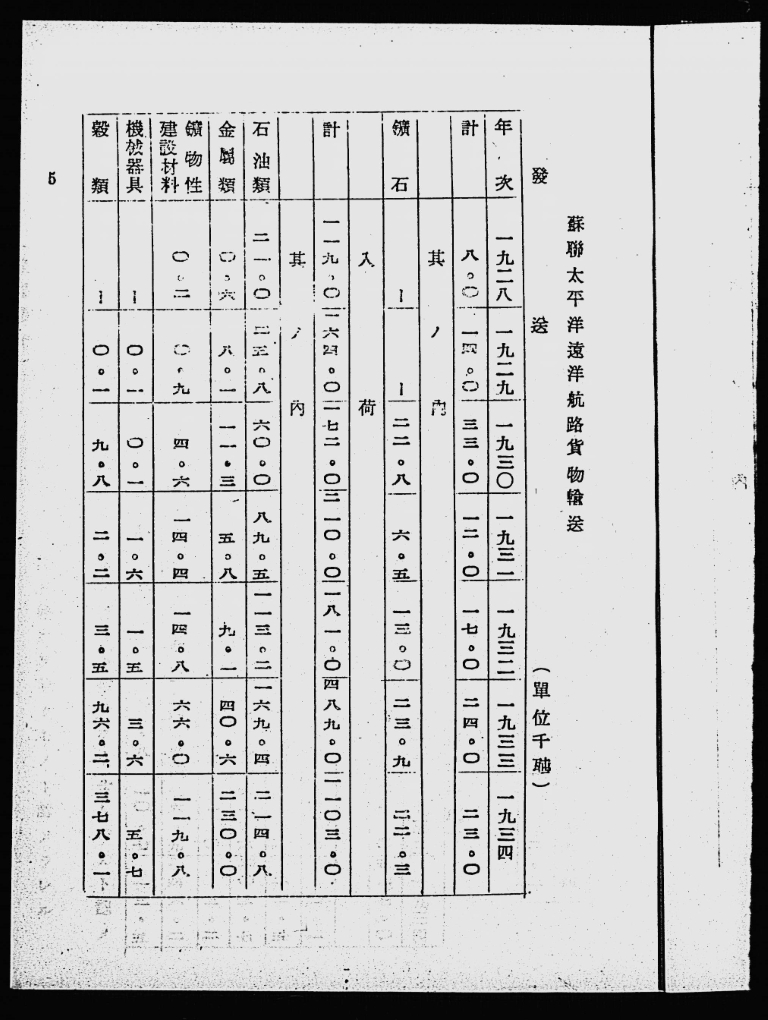 蘇聯太平洋遠洋航路貨物輸送
發送 (單位千瓲)
年次 一九二八 一九二九 一九三〇 一九三一 一九三二 一九三三 一九三四
計 八。〇 一四。〇 三三。〇 一二。〇 一七。〇 二四。〇 二三。〇
其ノ內
鑛石 ー ー 二二。八 六。五 一三。〇 二三。九 二二。三
入荷
計 一一九。〇 一六四。〇 一七二。〇 三一〇。〇 一八一。〇 四八九。〇 一一〇三。〇
其ノ內
石油類 二一。〇 二五。八 六〇。〇 八九。五 一一三。二 一六九。四 二一四。八
金屬類 〇。六 八。一 一一。三 五。八 九。一 四〇。六 二三〇。〇
鑛物性
建設材料 〇。二 〇。九 四。六 一四。四 一四。八 六六。〇 一一九。八
機械器具 ー 〇。一 〇。一 一。六 一。五 三。六 五。七
穀類 ー 〇。一 九。八 二。二 三。五 九六。二 三七八。一
5